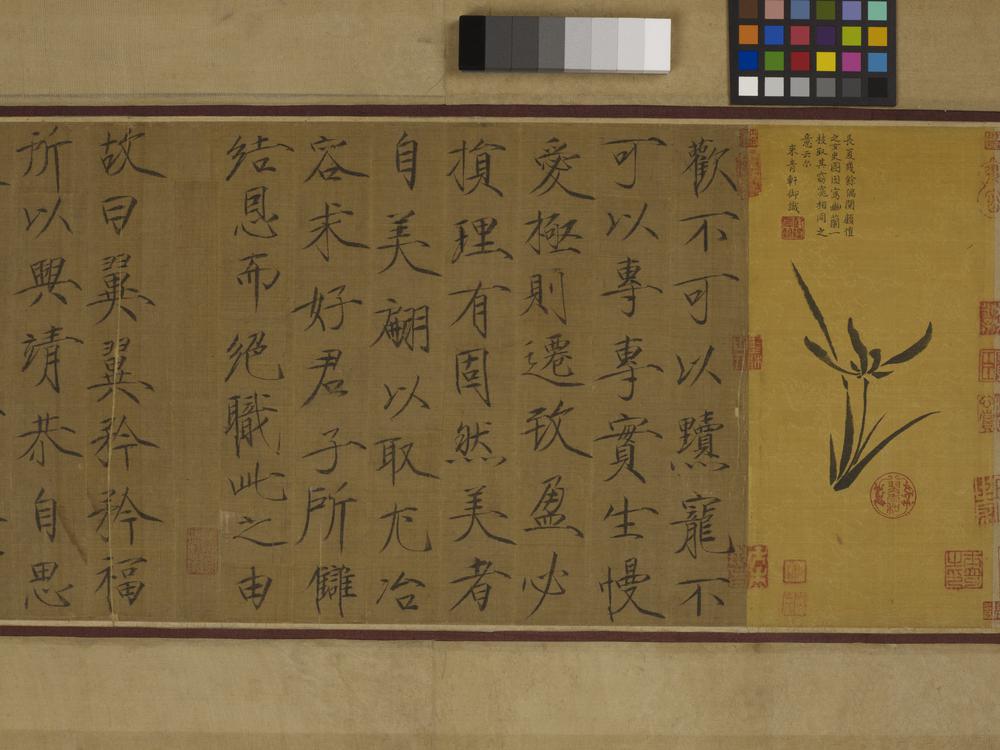 長夏幾餘偶閱顧愷
之女史圖因寫幽蘭一
枝取其窈窕相同之
意云尔
來青軒御識
歡不可以黷寵不
可以專專實生慢
愛極則遷致盈必
損理有固然美者
自美翩以取尤冶
容求好君子所讎
結恩而絕職此之由
故曰翼翼矜矜福
所以興靖恭自思